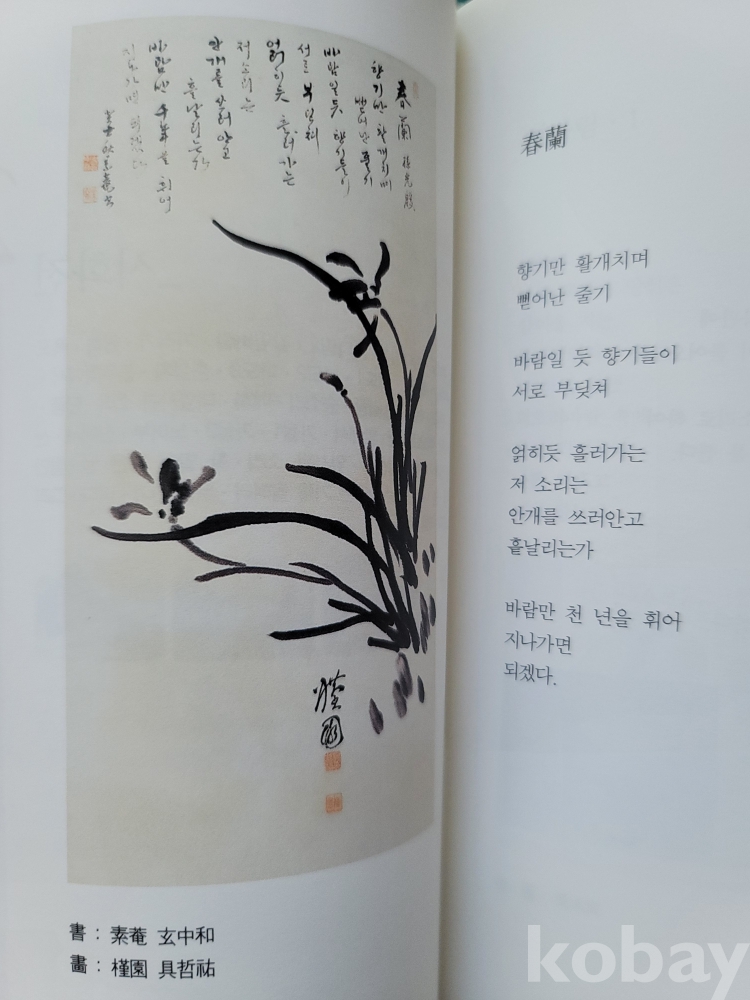 春蘭
향기만 활개치며
뻗어난 줄기
바람일듯 향기들이
서로 부딪쳐
얽히듯 흘러가는
저 소리는
안개를 쓰러안고
흩날리는가
바람만 千年을 휘어
지나가면 되겠다
槿園
書 : 素菴 玄中和
畵 : 槿園 具哲祐
春蘭
향기만 활개치며
뻗어난 줄기
바람일 듯 향기들이
서로 부딪쳐
얽히듯 흘러가는
저 소리는
안개를 쓰러안고
흩날리는가
바람만 천 년을 휘어
지나가면
되겠다.
kobay